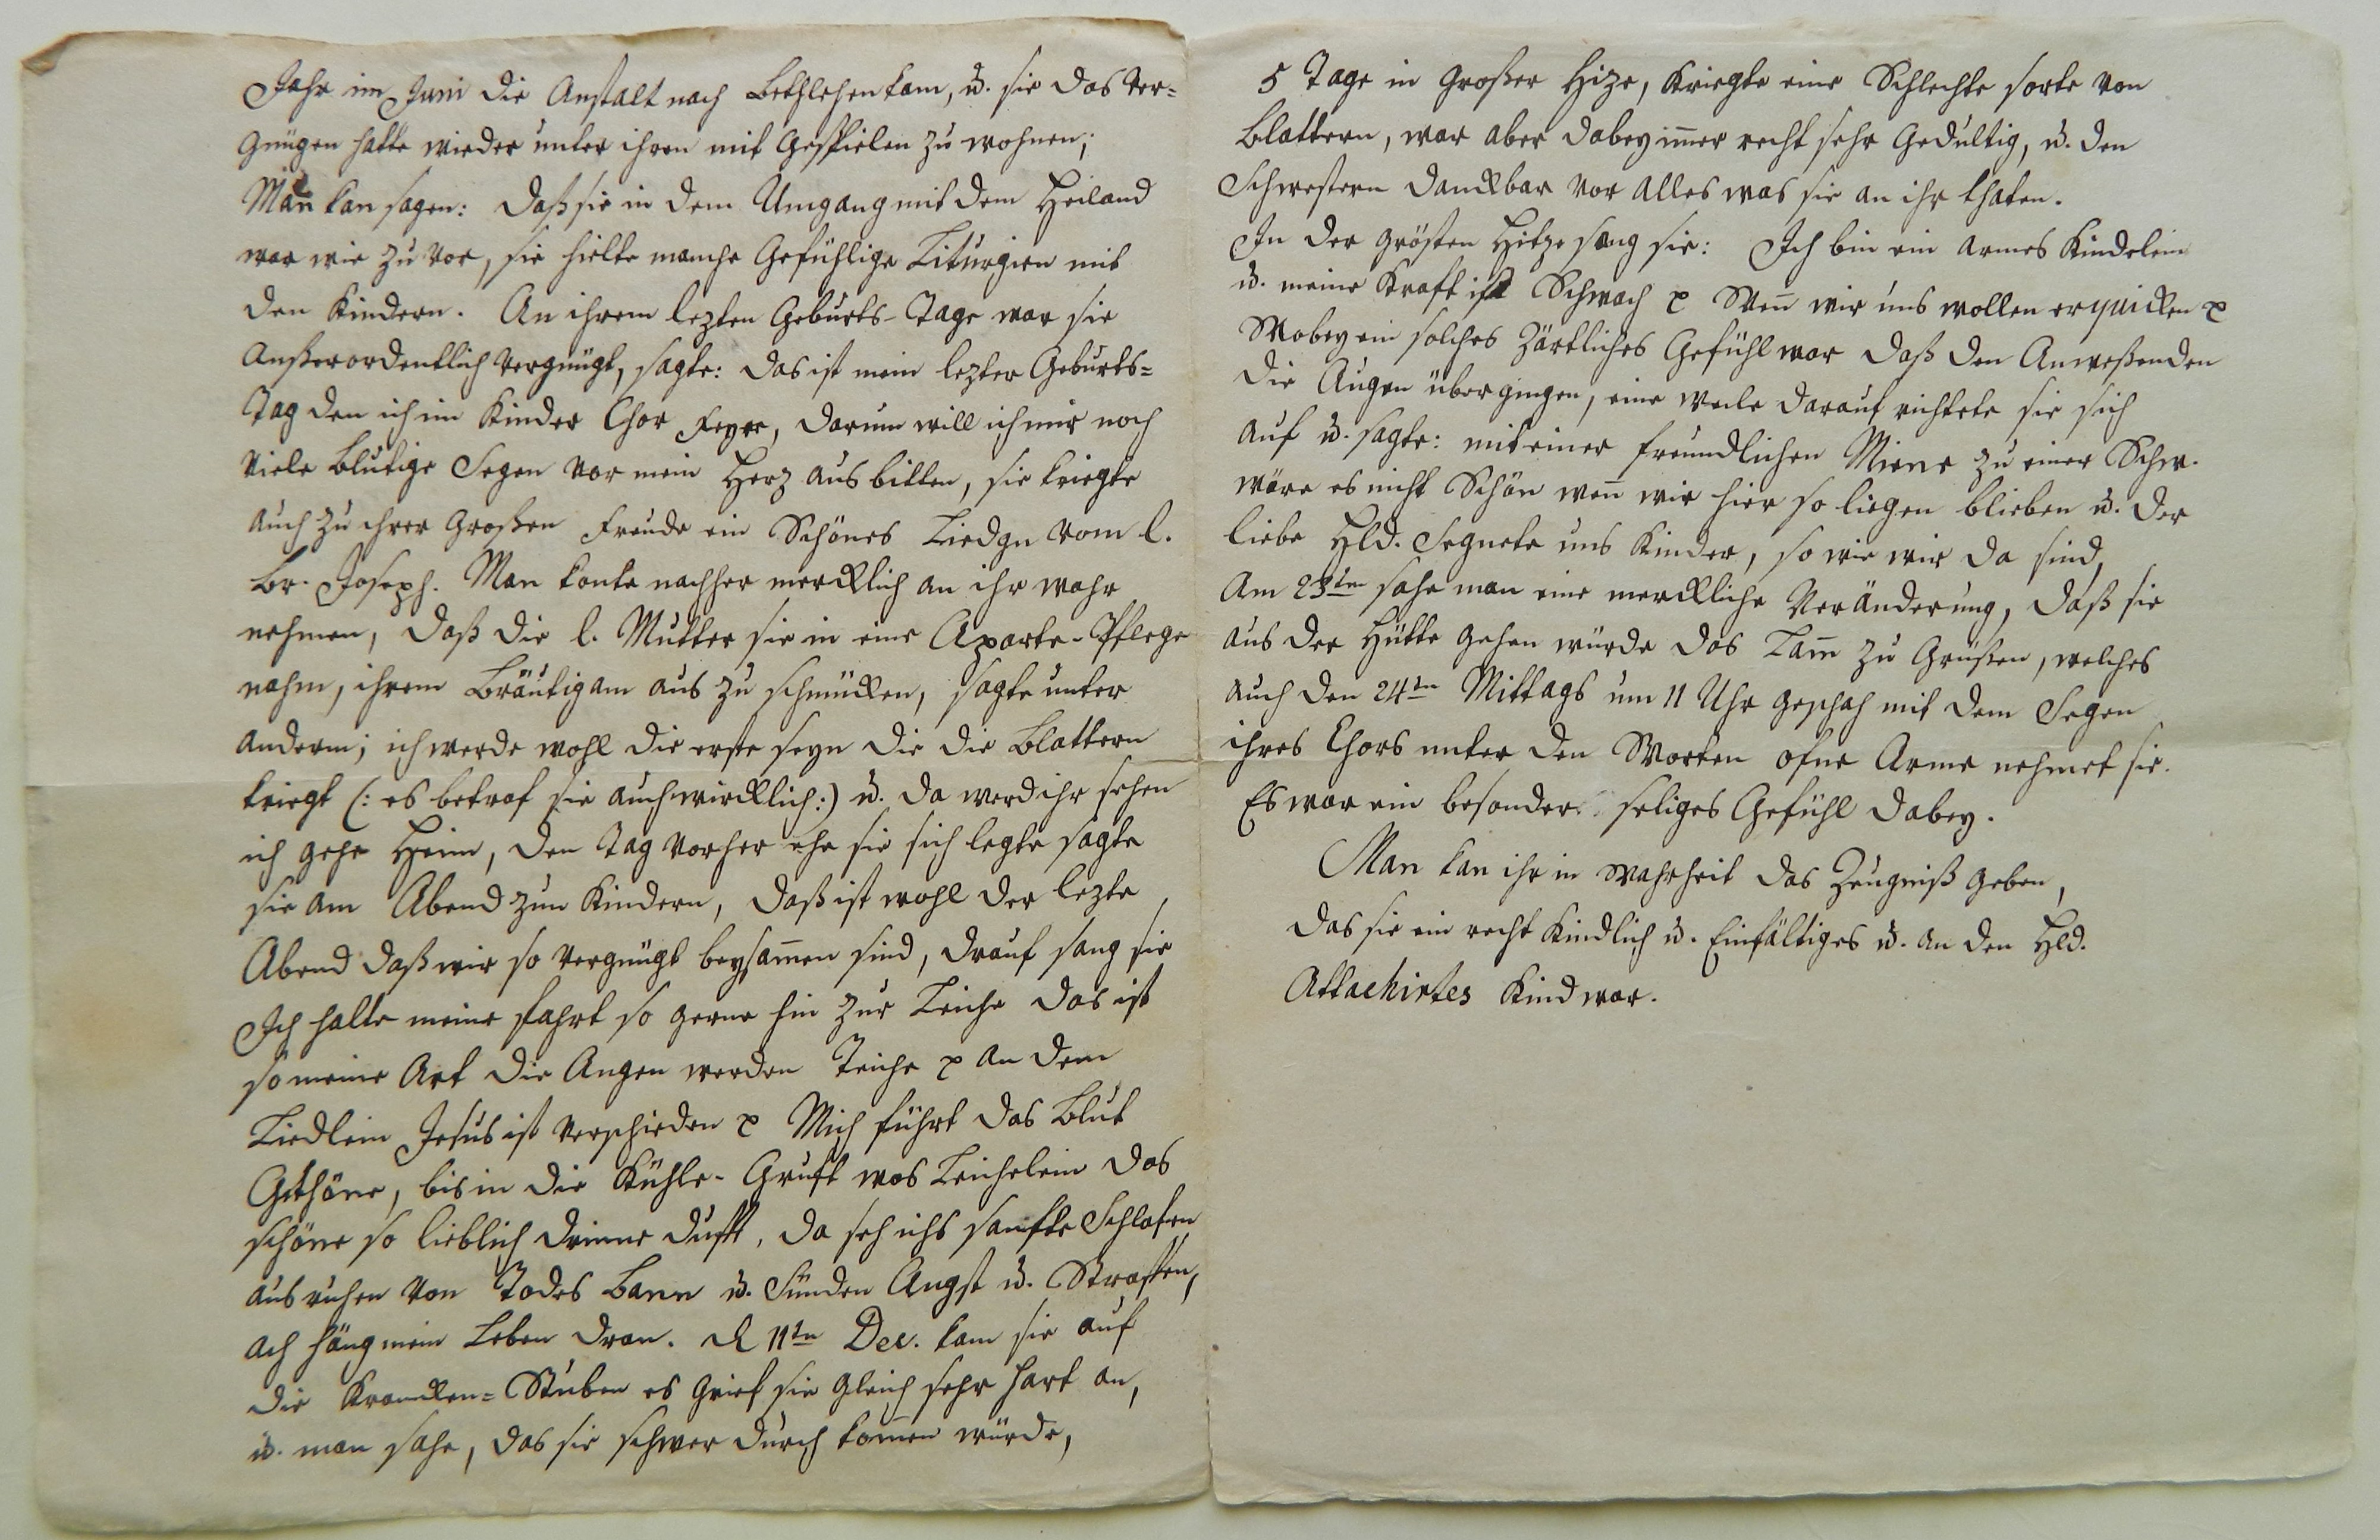 Jahr im Juni die Anstalt nach Bethlehem kam, u. sie das Ver=
gnügen hatte wieder unter ihren mit Gespielen zu wohnen;
Man kan sagen: daß sie in dem Umgang mit dem Heiland
war wie zu vor, sie hielte manche Gefühlige Liturgien mit
den Kindern. An ihrem lezten Geburts-Tage war sie
Außerordentlich vergnügt, sagte: das ist mein lezter Geburts=
Tag den ich im Kinder Chor Feyre, darum will ich mir noch
viele Blutige Segen vor mein Herz ausbitten, sie kriegte
auch zu ihrer Großen Freude ein Schönes Liedgn vom l.
Br. Joseph. Man konte nachher mercklich an ihr wahr
nehmen, daß die l. Mutter sie in eine Aparte-Pflege
nahm, ihrem Bräutigam aus zu schmücken, sagte unter
anderm; ich werde wohl die erste seyn die die Blattern
kriegt (: es betraf sie auch wircklich :) u. da werd ihr sehen
ich gehe Heim, den Tag vorher ehe sie sich legte sagte
sie am Abend zun Kindern, daß ist wohl der lezte
Abend daß wir so vergnügt beysam̄en sind, drauf sang sie
Ich halte meine fahrt so gerne hin zur Leiche das ist
so meine Art die Augen werden Teiche p an dem
Liedlein Jesus ist verschieden p Mich führt das Blut
Gethöne, bis in die Kühle-Gruft wos Leichelein das
schöne so lieblich drinne dufft, da seh ichs sanfte Schlafen
ausruhen von Todes Bann u. Sünden Angst u. Straffen,
ach häng mein Leben dran. d 11tn Dec. kam sie auf
die Krancken=Stuben es Grief sie gleich sehr hart an,
u. man sahe, das sie schwer durch kom̄en würde,
5 Tage in Großer Hize, Kriegte eine Schlechte sorte von
Blattern, war aber dabey im̄er recht sehr Gedultig, u. den
Schwestern Danckbar vor alles was sie an ihr thaten.
In der grösten Hitze sang sie: Ich bin ein armes Kindelein
u. meine Kraft ist Schwach p Wen̄ wir uns wollen erquicken p
Wobey ein solches Zärtliches Gefühl war daß den Anweßenden
die Augen übergingen, eine weile darauf richtete sie sich
auf u. sagte: mit einer freundlichen Miene zu einer Schw.
wäre es nicht Schön wen̄ wir hier so liegen blieben u. der
liebe Hld. Segnete uns Kinder, so wie wir da sind,
Am 23tn sahe man eine merckliche Veränderung, daß sie
aus der Hütte gehen würde das Lam̄ zu Grüßen, welches
auch den 24tn Mittags um 11 Uhr geschah mit dem Segen
ihres Chors unter den Worten ofne Arme nehmet sie.
Es war ein besonder seliges Gefühl dabey.
Man kan ihr in Wahrheit das Zeugniß geben,
das sie ein recht Kindlich u. Einfältiges u. an den Hld.
Attachirtes Kind war.